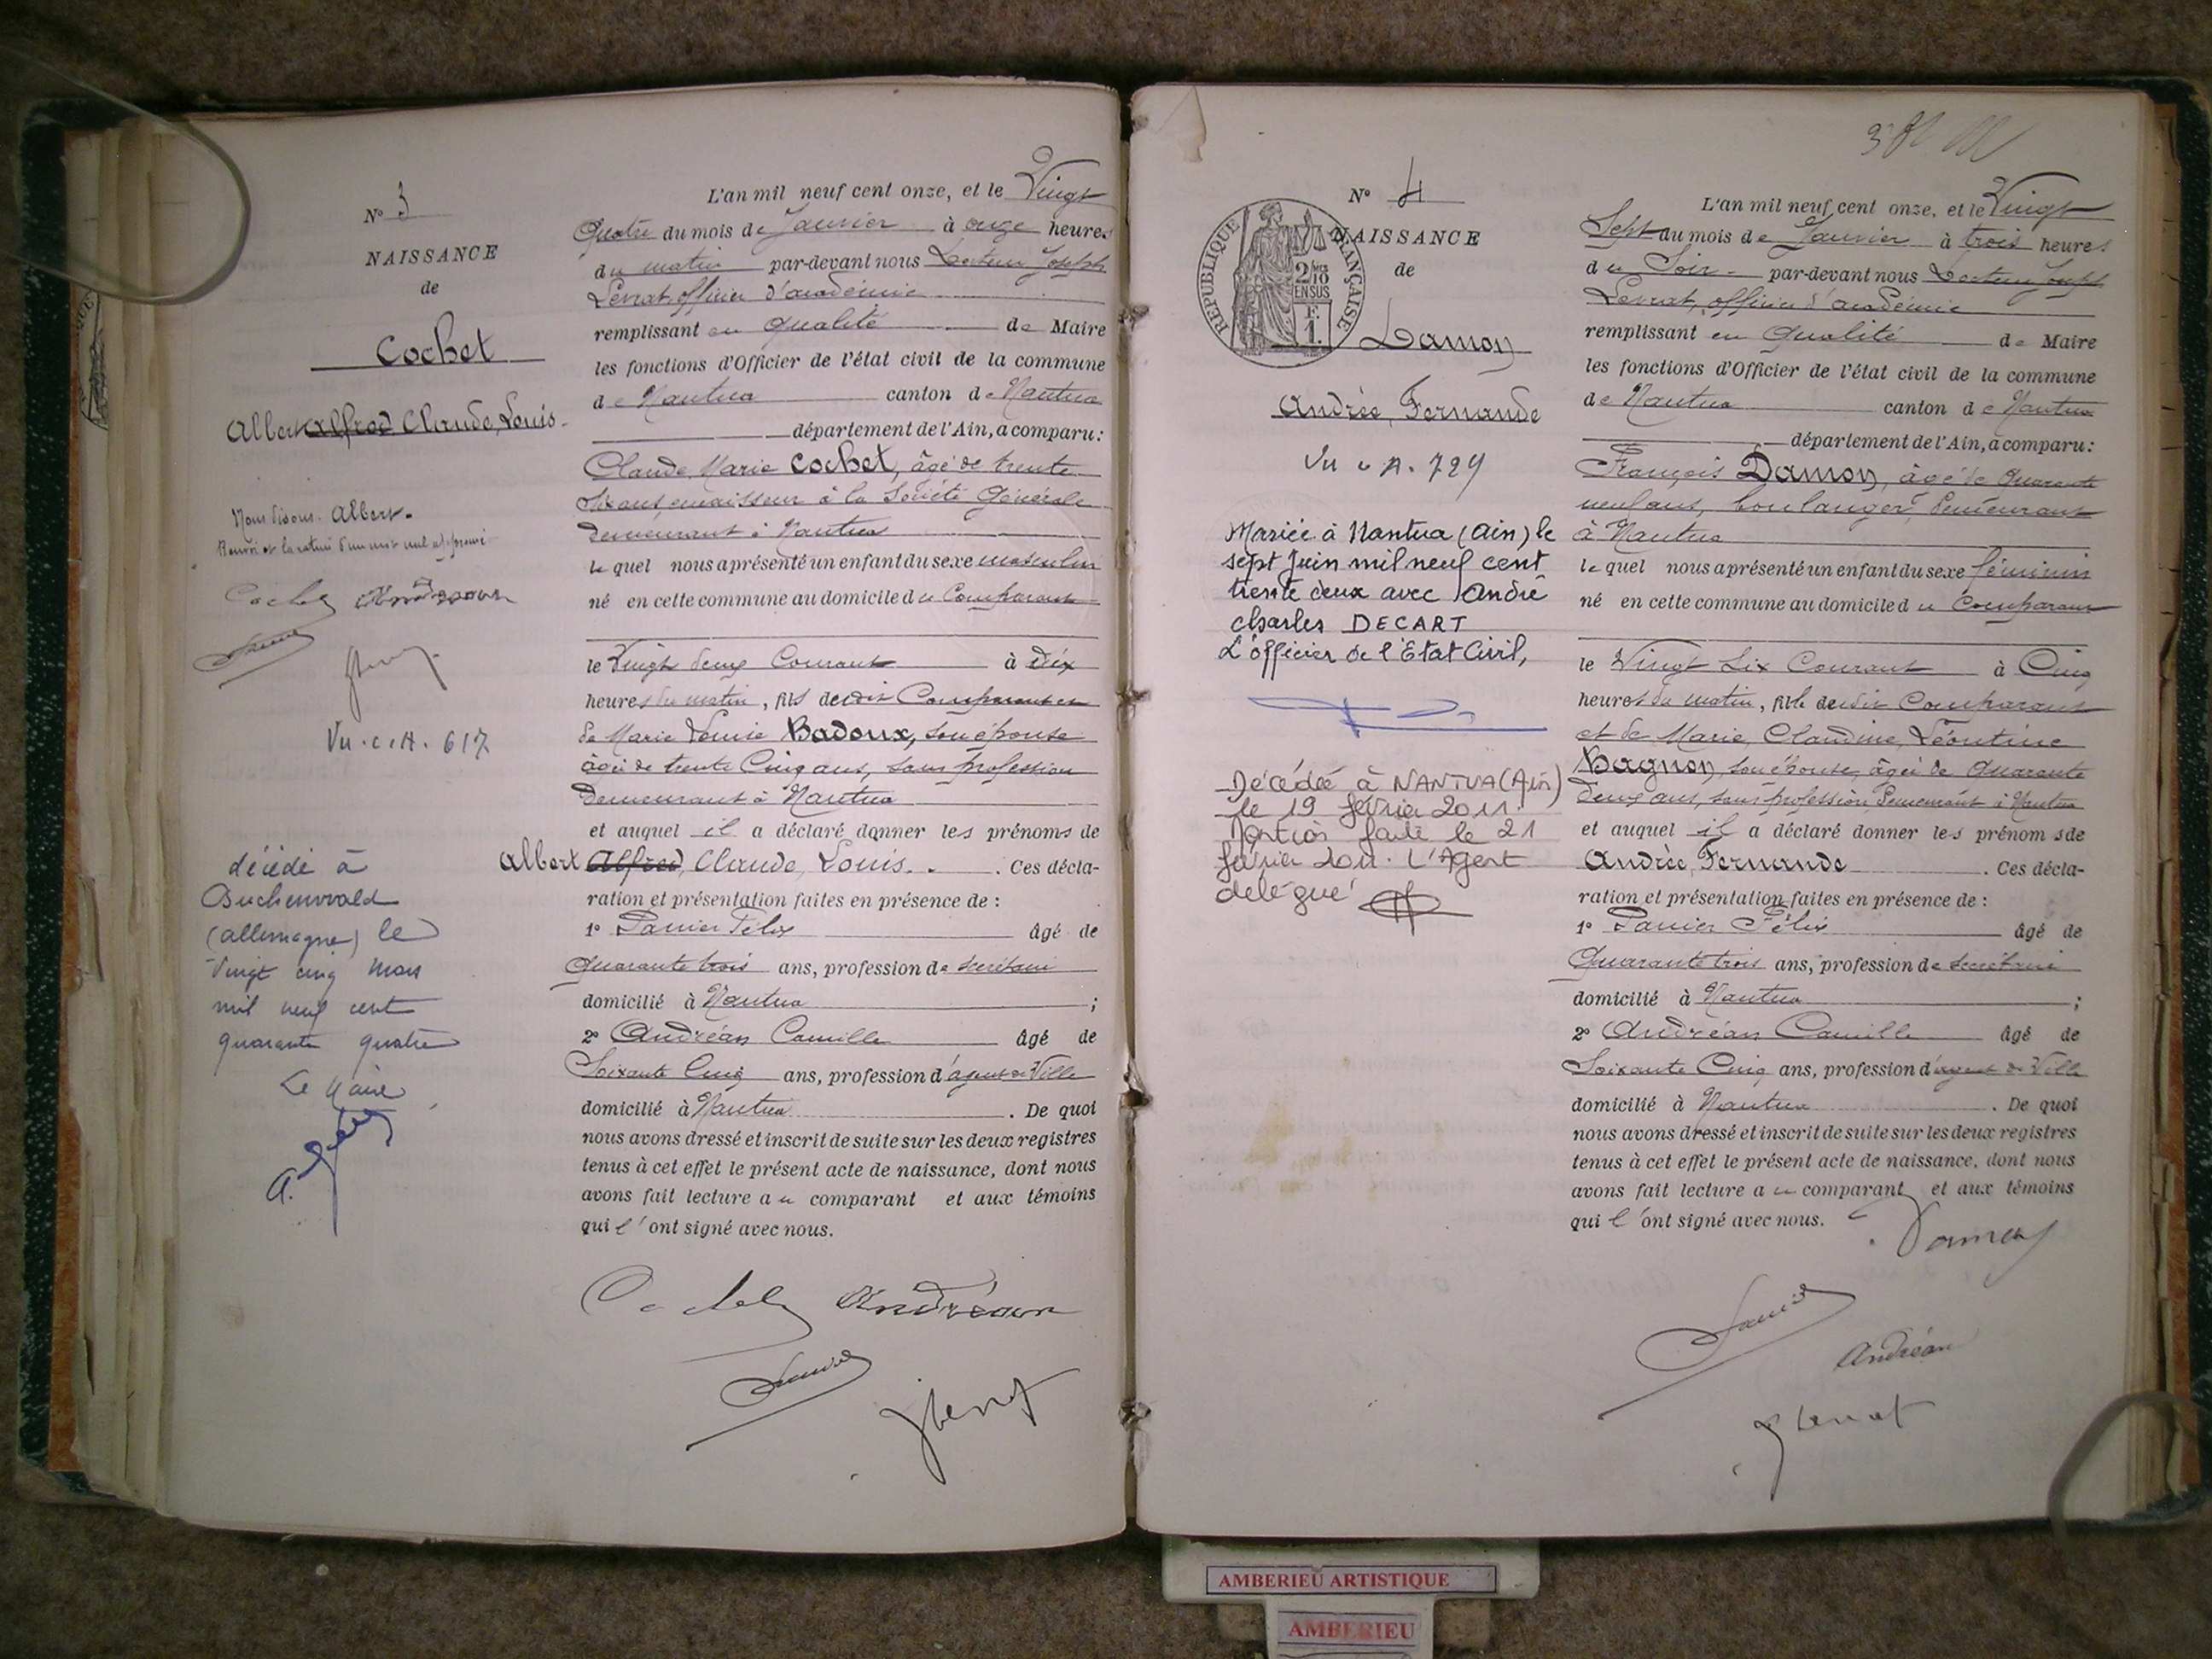 N° 3
NAISSANCE
de
Cochet
Albert Alfred Claude, Louis.
Nous disons. Albert.
Renvoi et la rature d'un mot nul approuvé
Cochet Andréan
Vu.c.A. 617
décédé à
Buchenwald
(allemagne) le
Vingt cinq Mars
mil neuf cent
quarante quatre
Le Maire
L'an mil neuf cent onze, et le Vingt
Quatre du mois de Janvier à onze heures
du matin par-devant nous Docteur Joseph
Levrat, officier d'académie
remplissant en qualité de Maire
les fonctions d'Officier de l'état civil de la commune
de Nantua canton de Nantua
département de l'Ain, a comparu:
Claude Marie Cochet, âgé de trente
six ans, encaisseur à la Société Générale
demeurant à Nantua
le quel nous a présenté un enfant du sexe masculin
né en cette commune au domicile du Comparant
le Vingt deux Courant à dix
heures du matin, fils dudit Comparant et
de Marie Louise Badoux, son épouse
âgée de trente Cinq ans, sans profession
demeurant à Nantua
et auquel il a déclaré donner les prénoms de
Albert Alfred, Claude, Louis. . Ces décla-
ration et présentation faites en présence de :
1° Panier Félix âgé de
Quarante trois ans, profession de secrétaire
domicilié à Nantua ;
2° Andréan Camille âgé de
Soixante Cinq ans, profession d'agent de Ville
domicilié à Nantua . De quoi
nous avons dressé et inscrit de suite sur les deux registres
tenus à cet effet le présent acte de naissance, dont nous
avons fait lecture au comparant et aux témoins
qui l'ont signé avec nous.
Cochet Andréan
N° 4
NAISSANCE
de
RÉPUBLIQUE FRANÇAISE
2/10
EN SUS
F.
1.
Damon
Andrée, Fernande
Vu c A. 729
Mariée à Nantua (Ain) le
sept Juin mil neuf cent
trente deux avec André
Charles DECART
L'officier de l'Etat Civil,
Décédée à NANTUA (Ain)
le 19 février 2011.
Mention faite le 21
février 2011. L'Agent
délégué
L'an mil neuf cent onze, et le Vingt
Sept du mois de Janvier à trois heures
du Soir par-devant nous Docteur Joseph
Levrat, officier d'académie
remplissant en qualité de Maire
les fonctions d'Officier de l'état civil de la commune
de Nantua canton de Nantua
département de l'Ain, a comparu:
François Damon, âgé de Quarante
neuf ans, boulanger, demeurant
à Nantua
le quel nous a présenté un enfant du sexe féminin
né en cette commune au domicile du Comparant
le Vingt Six Courant à Cinq
heures du matin, fille dudit Comparant
et de Marie, Claudine, Léontine
Bagnon, son épouse, âgée de Quarante
deux ans, sans profession, demeurant à Nantua
et auquel il a déclaré donner les prénoms de
Andrée, Fernande . Ces décla-
ration et présentation faites en présence de :
1° Panier Félix âgé de
Quarante trois ans, profession de secrétaire
domicilié à Nantua ;
2° Andréan Camille âgé de
Soixante Cinq ans, profession d'agent de Ville
domicilié à Nantua . De quoi
nous avons dressé et inscrit de suite sur les deux registres
tenus à cet effet le présent acte de naissance, dont nous
avons fait lecture au comparant et aux témoins
qui l'ont signé avec nous.
Damon
Andréan
AMBERIEU ARTISTIQUE
AMBERIEU